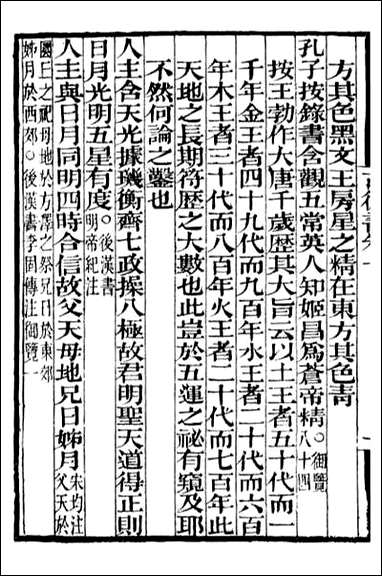 方其色黑文王房星之精在東方其色青
孔子按錄書含觀五常英人知姬昌爲蒼帝精。御覽八十四
按王勃作大唐千歲歷其大旨云以土王者五十代而一
千年金王者四十九代而九百年水王者二十代而六百
年木王者三十代而八百年火王者二十代而七百年此
天地之長期符歷之大數也此豈於五運之祕有窺及耶
不然何論之鑿也
人主含天光據璣衡齊七政操八極故君明聖天道得正則
日月光明五星有度。後漢書明帝紀注
人主與日月同明四時合信故父天母地兄日姊月宋均注父天於
圜丘之祀母地於方澤之祭兄日於東郊
姊月於西郊。後漢書李固傳注御覽一